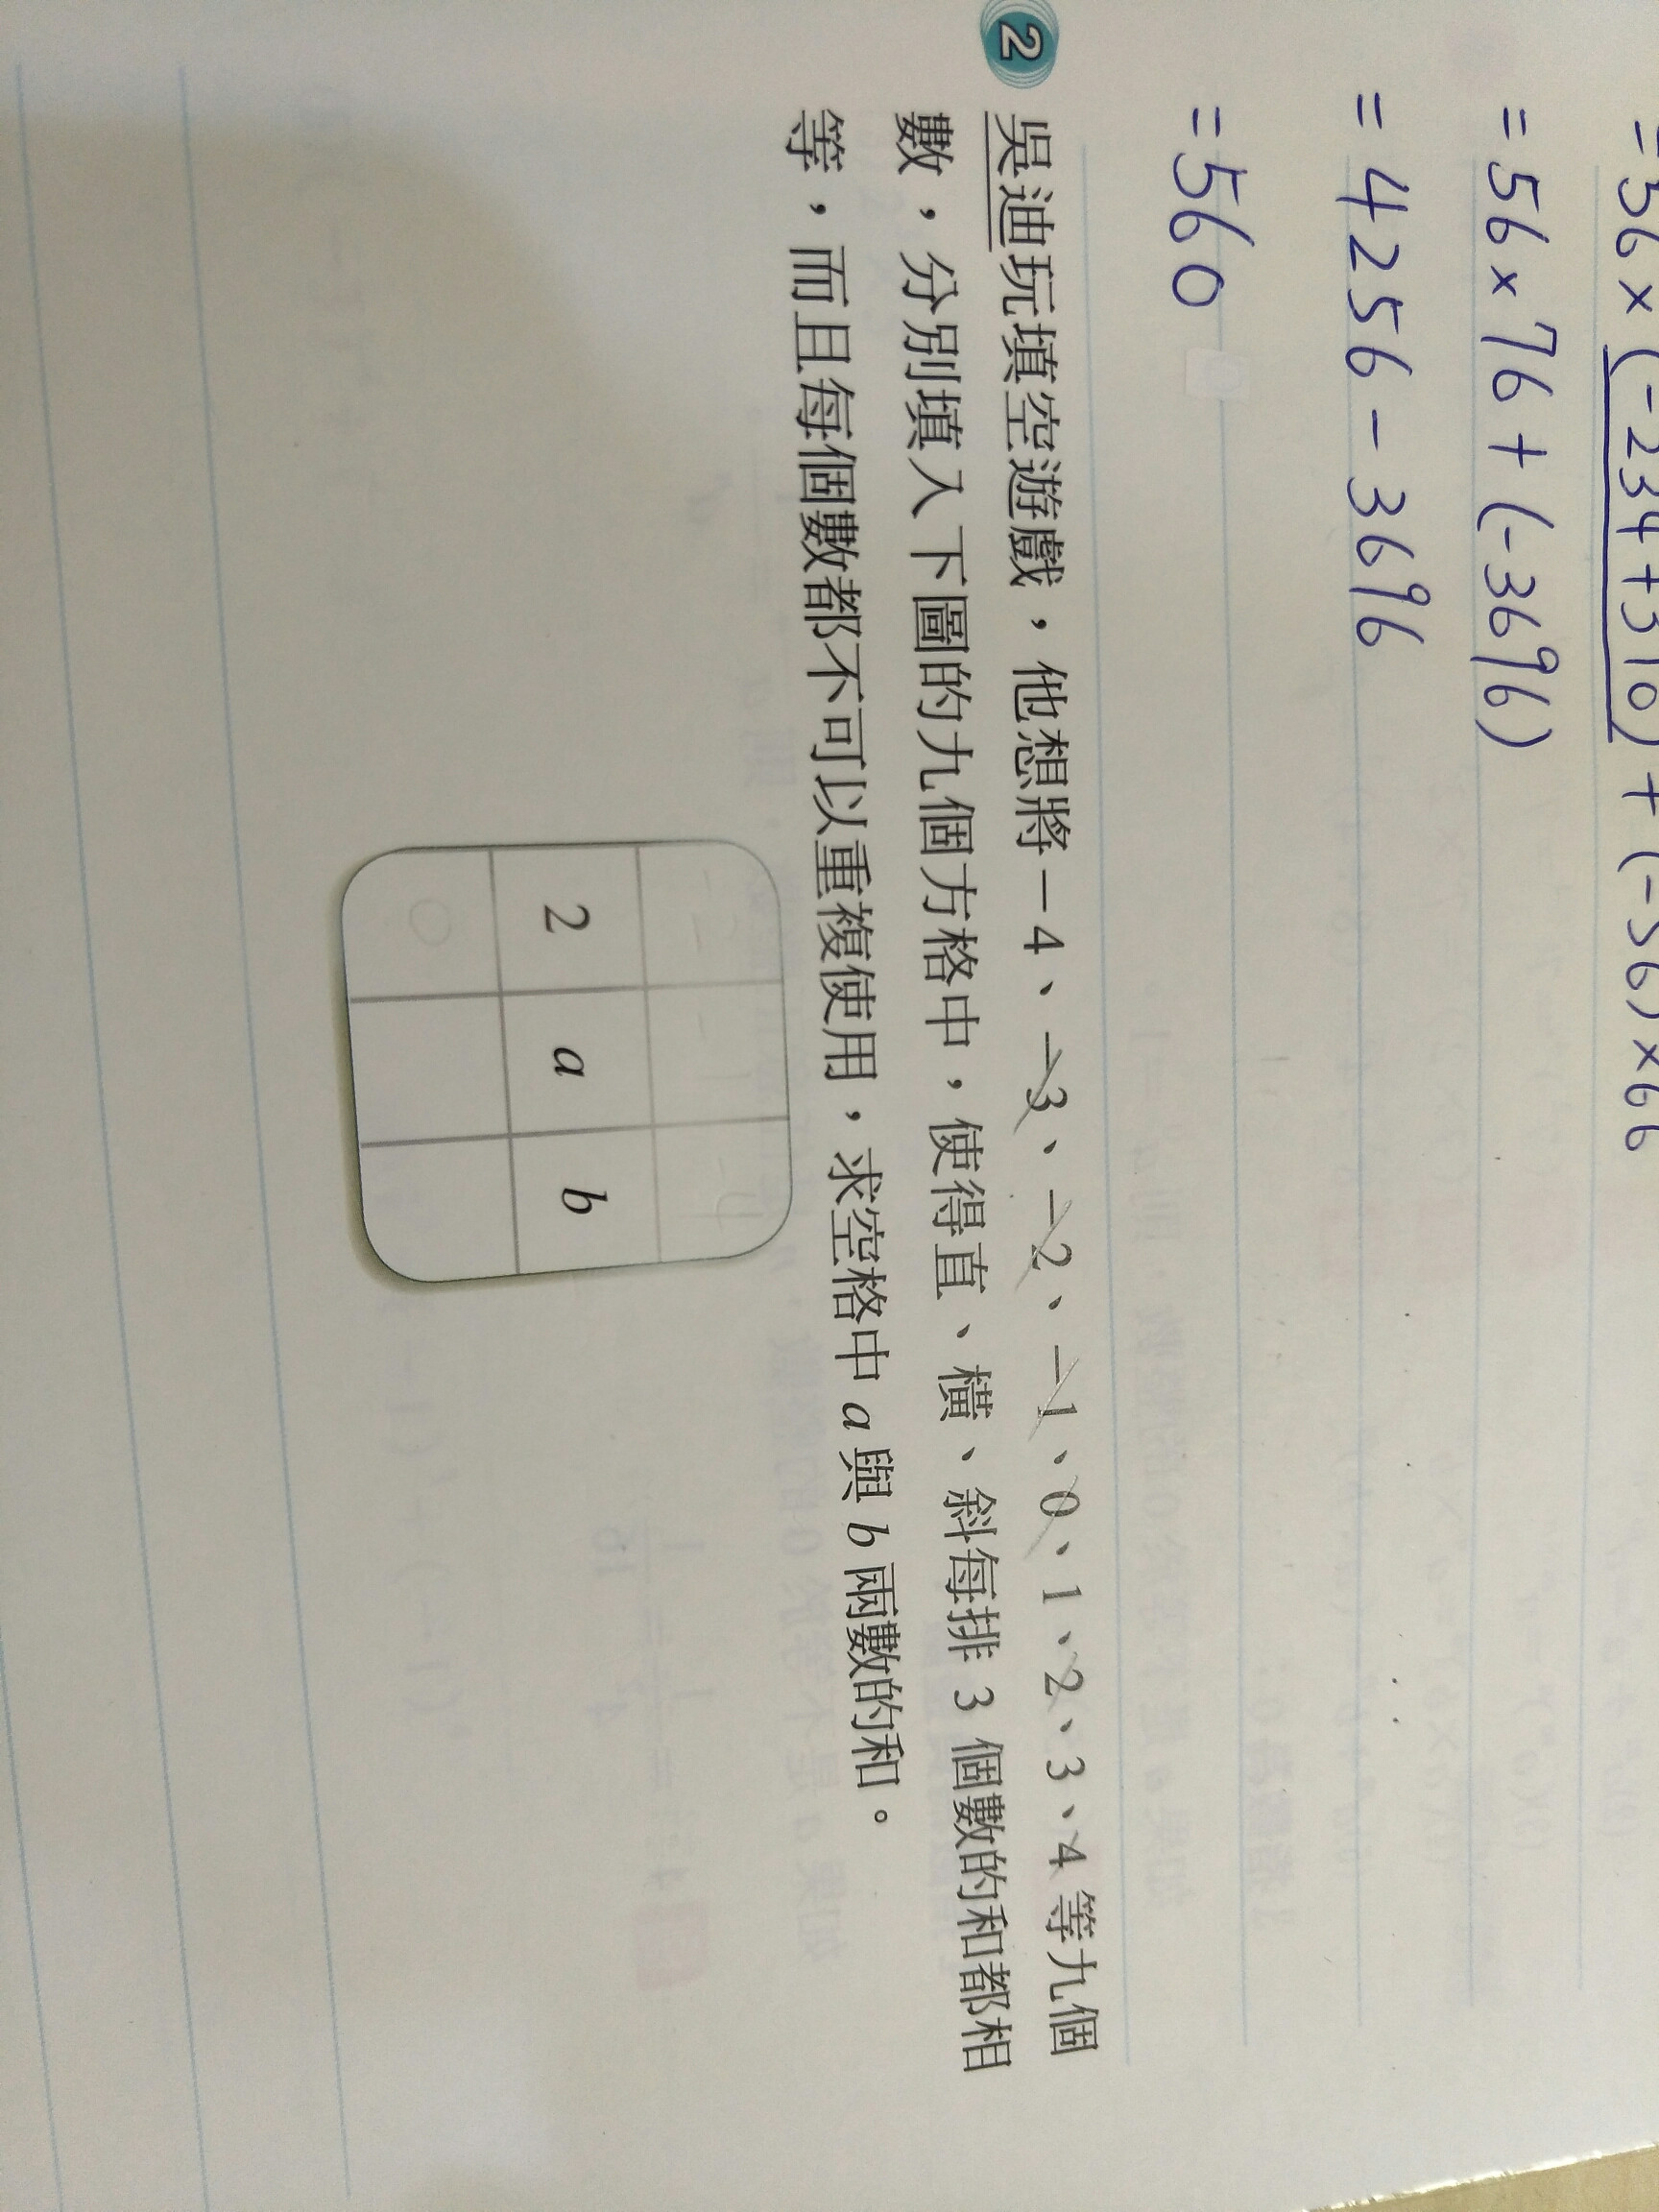 =56×(-234+310)+(-56)×66
=56×76+(-3696)
=4256-3696
=560
2 吳迪玩填空遊戲，他想將－4、－3、－2、－1、0、1、2、3、4 等九個
數，分別填入下圖的九個方格中，使得直、橫、斜每排 3 個數的和都相
等，而且每個數都不可以重複使用，求空格中 a 與 b 兩數的和。
2 a b
0